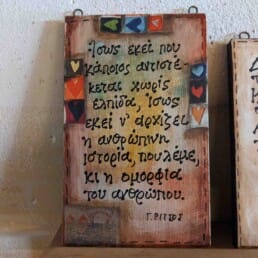 Ἴσως ἐκεῖ που
κάποιος ἀντιστέ-
κεται χωρίς
ἐλπίδα, ἴσως
ἐκεῖ ν' ἀρχίζει
ἡ ἀνθρώπινη
ἱστορία, που λέμε,
κι ἡ ὀμορφιά
του ἀνθρώπου.
Γ. ΡΙΤΣΟΣ